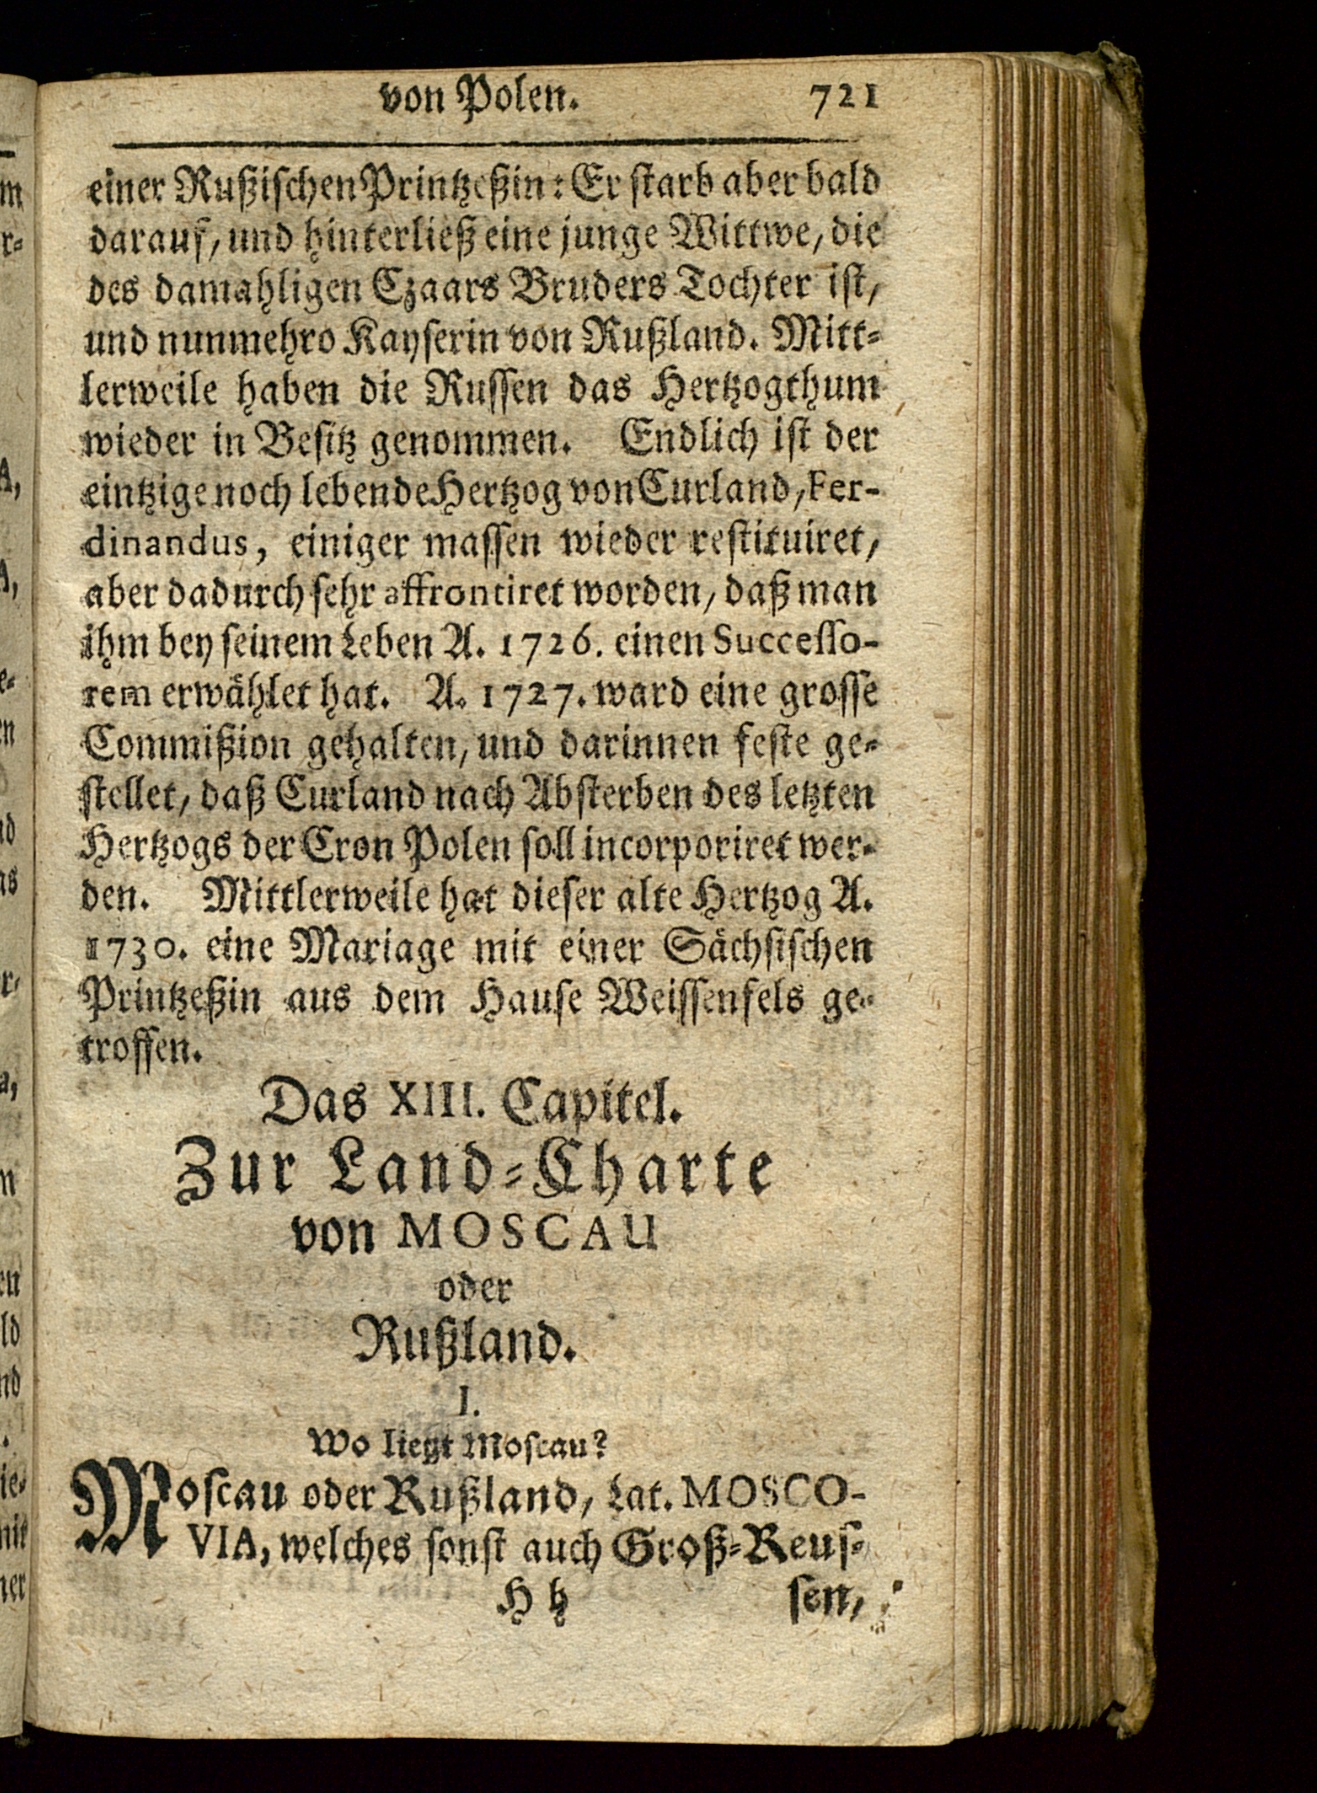 von Polen. 721
einer Rußischen Printzeßin: Er starb aber bald
darauf, und hinterließ eine junge Wittwe, die
des damahligen Czaars Bruders Tochter ist,
und nunmehro Kayserin von Rußland. Mitt-
lerweile haben die Russen das Hertzogthum
wieder in Besitz genommen. Endlich ist der
eintzige noch lebende Hertzog von Curland, Fer-
dinandus, einiger massen wieder restituiret,
aber dadurch sehr affrontiret worden, daß man
ihm bey seinem Leben A. 1726. einen Successo-
rem erwählet hat. A. 1727. ward eine grosse
Commißion gehalten, und darinnen feste ge-
stellet, daß Curland nach Absterben des letzten
Hertzogs der Cron Polen soll incorporiret wer-
den. Mittlerweile hat dieser alte Hertzog A.
1730. eine Mariage mit einer Sächsischen
Printzeßin aus dem Hause Weissenfels ge-
troffen.
Das XIII. Capitel.
Zur Land-Charte
von MOSCAU
oder
Rußland.
I.
Wo liegt Moscau?
Moscau oder Rußland, Lat. MOSCO-
VIA, welches sonst auch Groß-Reus-
H h sen,